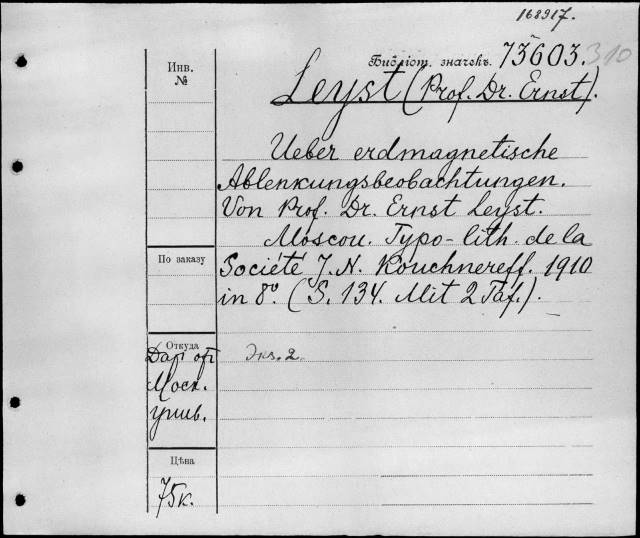 168917.
Инв.
№
Библіот. значекъ. 73603. 310
Leyst (Prof. Dr. Ernst).
Ueber erdmagnetische
Ablenkungsbeobachtungen.
Von Prof. Dr. Ernst Leyst.
Moscou. Typo-lith. de la
По заказу
Société J. N. Kouchnereff. 1910
in 8º. (S. 134. Mit 2 Taf.).
Откуда
Даръ отъ
Экз. 2.
Моск.
унив.
Цѣна
75к.